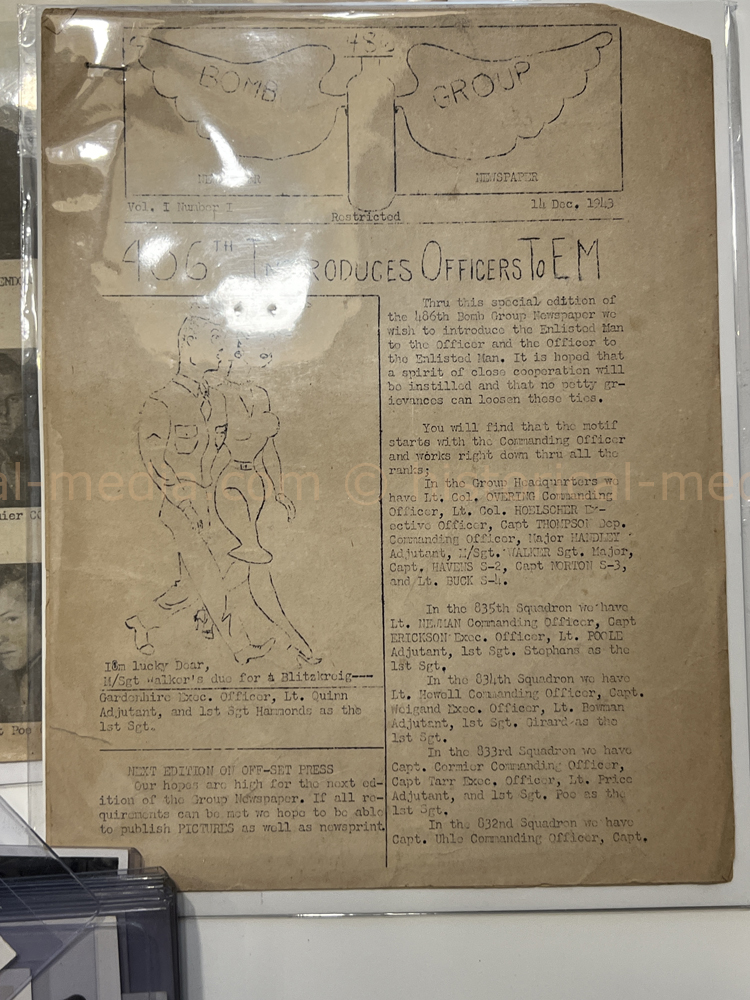 486
BOMB GROUP
NEWSPAPER
Vol. I Number I
14 Dec. 1943
Restricted
486TH INTRODUCES OFFICERS TO EM
Thru this special edition of
the 486th Bomb Group Newspaper we
wish to introduce the Enlisted Man
to the Officer and the Officer to
the Enlisted Man. It is hoped that
a spirit of close cooperation will
be instilled and that no petty gr-
ievances can loosen these ties.
You will find that the motif
starts with the Commanding Officer
and works right down thru all the
ranks;
In the Group Headquarters we
have Lt. Col. OVERING Commanding
Officer, Lt. Col. HOELSCHER Ex-
ective Officer, Capt THOMPSON Dep.
Commanding Officer, Major HANDLEY
Adjutant, M/Sgt. WALKER Sgt. Major,
Capt. HAVENS S-2, Capt NORTON S-3,
and Lt. BUCK S-4.
In the 835th Squadron we have
Lt. NEWMAN Commanding Officer, Capt
ERICKSON Exec. Officer, Lt. POOLE
Adjutant, 1st Sgt. Stephans as the
1st Sgt.
In the 834th Squadron we have
Lt. Howell Commanding Officer, Capt.
Weigand Exec. Officer, Lt. Bowman
Adjutant, 1st Sgt. Girard as the
1st Sgt.
In the 833rd Squadron we have
Capt. Cormier Commanding Officer,
Capt Tarr Exec. Officer, Lt. Price
Adjutant, and 1st Sgt. Poe as the
1st Sgt.
In the 832nd Squadron we have
Capt. Uhle Commanding Officer, Capt.
I'm lucky Dear,
M/Sgt Walker's due for a Blitzkreig---
Gardenhire Exec. Officer, Lt. Quinn
Adjutant, and 1st Sgt Hammonds as the
1st Sgt.
NEXT EDITION ON OFF-SET PRESS
Our hopes are high for the next ed-
ition of the Group Newspaper. If all re-
quirements can be met we hope to be able
to publish PICTURES as well as newsprint